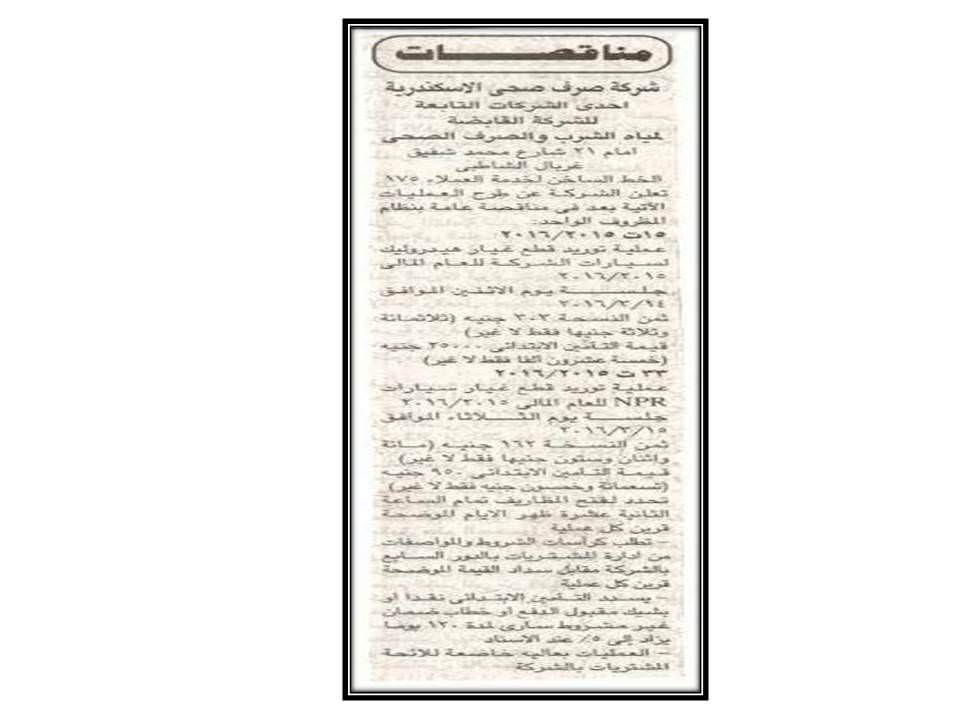 مناقصات
شركة صرف صحى الاسكندرية
احدى الشركات التابعة
للشركة القابضة
لمياه الشرب والصرف الصحى
امام ٢١ شارع محمد شفيق
غربال الشاطبى
الخط الساخن لخدمة العملاء ١٧٥
تعلن الشركة عن طرح العمليات
الآتية بعد فى مناقصة عامة بنظام
المظروف الواحد:
١٥ت ٢٠١٦/٢٠١٥
عملية توريد قطع غيار هيدروليك
لسيارات الشركة للعام المالى
٢٠١٦/٢٠١٥
جلسة يوم الاثنين الموافق
٢٠١٦/٣/١٤
ثمن النسخة ٣٠٣ جنيه (ثلاثمائة
وثلاثة جنيها فقط لا غير)
قيمة التأمين الابتدائى ٢٥٠٠٠ جنيه
(خمسة عشرون الفا فقط لا غير)
٣٣ ت ٢٠١٦/٢٠١٥
عملية توريد قطع غيار سيارات
NPR للعام المالى ٢٠١٦/٢٠١٥
جلسة يوم الثلاثاء الموافق
٢٠١٦/٣/١٥
ثمن النسخة ١٦٢ جنيه (مائة
واثنان وستون جنيها فقط لا غير)
قيمة التامين الابتدائى ٩٥٠ جنيه
(تسعمائة وخمسون جنيه فقط لا غير)
تحدد لفتح المظاريف تمام الساعة
الثانية عشرة ظهر الايام الموضحة
قرين كل عملية
– تطلب كراسات الشروط والمواصفات
من ادارة المشتريات بالدور السابع
بالشركة مقابل سداد القيمة الموضحة
قرين كل عملية
– يسدد التأمين الابتدائى نقدا او
بشيك مقبول الدفع او خطاب ضمان
غير مشروط سارى لمدة ١٢٠ يوما
يزاد إلى ٥٪ عند الاسناد
– العمليات بعاليه خاضعة للائحة
المشتريات بالشركة